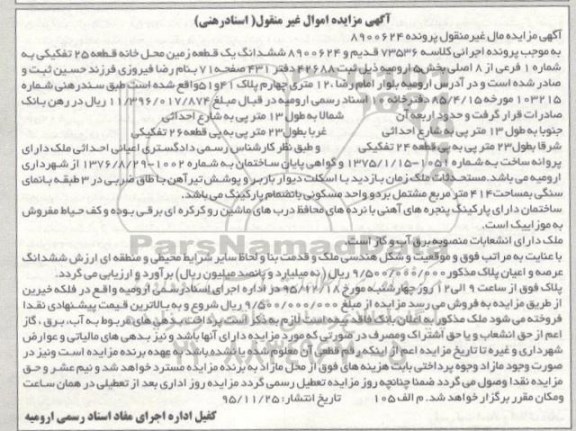 آگهی مزایده اموال غیر منقول( اسنادرهنی)
آگهی مزایده مال غیرمنقول پرونده ۸۹۰۰۶۲۴
به موجب پرونده اجرائی کلاسه ۷۳۵۳۶ قدیم و ۸۹۰۰۶۲۴ ششدانگ یک قطعه زمین محل خانه قطعه ۲۵ تفکیکی به
شماره ۱ فرعی از ۸ اصلی بخش ارومیه ذیل ثبت ۴۲۶۸۸ دفتر ۴۳۱ صفحه ۷۱ بنام رضا فیروزی فرزند حسین ثبت و
صادر شده است و در آدرس ارومیه بلوار امام رضا، ۱۲ متری چهارم پلاک ۴۱ و۵۱ واقع شده است طبق سندرهنی شماره
۱۰۳۲۱۵ مورخه ۸۵/۴/۱۵ دفترخانه ۱۰ اسناد رسمی ارومیه در قبال مبلغ ۱۱/۳۹۶/۰۱۷/۸۷۴ ریال در رهن بانک
صادرات قرار گرفت و حدود اربعه آن شمالا به طول ۱۳ متر پی به شارع احداثی
جنوبا به طول ۱۳ متر پی به شارع احداثی غربا بطول ۲۳ متر پی به پی قطعه ۲۶ تفکیکی
شرقا بطول ۲۳ متر پی به پی قطعه ۲۴ تفکیکی و طبق نظر کارشناس رسمی دادگستری اعیانی احداثی ملک دارای
پروانه ساخت به شماره ۱۰۵۱-۱۳۷۵/۱/۱۵ و گواهی پایان ساختمان به شماره ۱۰۰۲-۱۳۷۶/۸/۲۹ از شهرداری
ارومیه می باشد. مستحدثات ملک زمان بازدید با اسکلت دیوار باربر و پوشش تیرآهن با طاق ضربی در ۳ طبقه بانمای
سنگی بمساحت ۴۱۴ متر مربع مشتمل بر دو واحد مسکونی باانضمام پارکینگ می باشد.
ساختمان دارای پارکینگ پنجره های آهنی با نرده های محافظ درب های ماشین رو کرکره ای برقی بوده و کف حیاط مفروش
به موزاییک است.
ملک دارای انشعابات منصوبه برق آب و گاز است.
با عنایت به مراتب فوق و موقعیت و شکل هندسی ملک و قدمت بنا و لحاظ سایر شرایط محیطی و منطقه ای ارزش ششدانگ
عرصه و اعیان پلاک مذکور ۹/۵۰۰/۰۰۰/۰۰۰ ریال (نه میلیارد و پانصد میلیون ریال) برآورد و ارزیابی می گردد.
پلاک فوق از ساعت ۹ الی ۱۲ روز چهارشنبه مورخ ۹۵/۱۲/۱۸ در اداره اجرای اسناد رسمی ارومیه واقع در فلکه خیرین
از طریق مزایده به فروش می رسد مزایده از مبلغ ۹/۵۰۰/۰۰۰/۰۰۰ ریال شروع و به بالاترین قیمت پیشنهادی نقدا
فروخته می شود ملک مذکور به اعلان بانک فاقد بیمه است لازم به ذکر است پرداخت بدهی های مربوط به آب، برق، گاز
اعم از حق انشعاب و یا حق اشتراک ومصرف در صورتی که مورد مزایده دارای آنها باشد و نیز بدهی های مالیاتی و عوارض
شهرداری و غیره تا تاریخ مزایده اعم از اینکه رقم قطعی آن معلوم شده یا نشده باشد به عهده برنده مزایده است ونیز در
صورت وجود مازاد وجوه پرداختی بابت هزینه های فوق از محل مازاد به برنده مزایده مسترد خواهد شد و نیم عشر و حق
مزایده نقدا وصول می گردد ضمنا چنانچه روز مزایده تعطیل رسمی گردد مزایده روز اداری بعد از تعطیلی در همان ساعت
ومکان مقرر برگزار خواهد شد. م الف ۱۰۵ تاریخ انتشار: ۹۵/۱۱/۲۵
کفیل اداره اجرای مفاد اسناد رسمی ارومیه
ParsNamadData